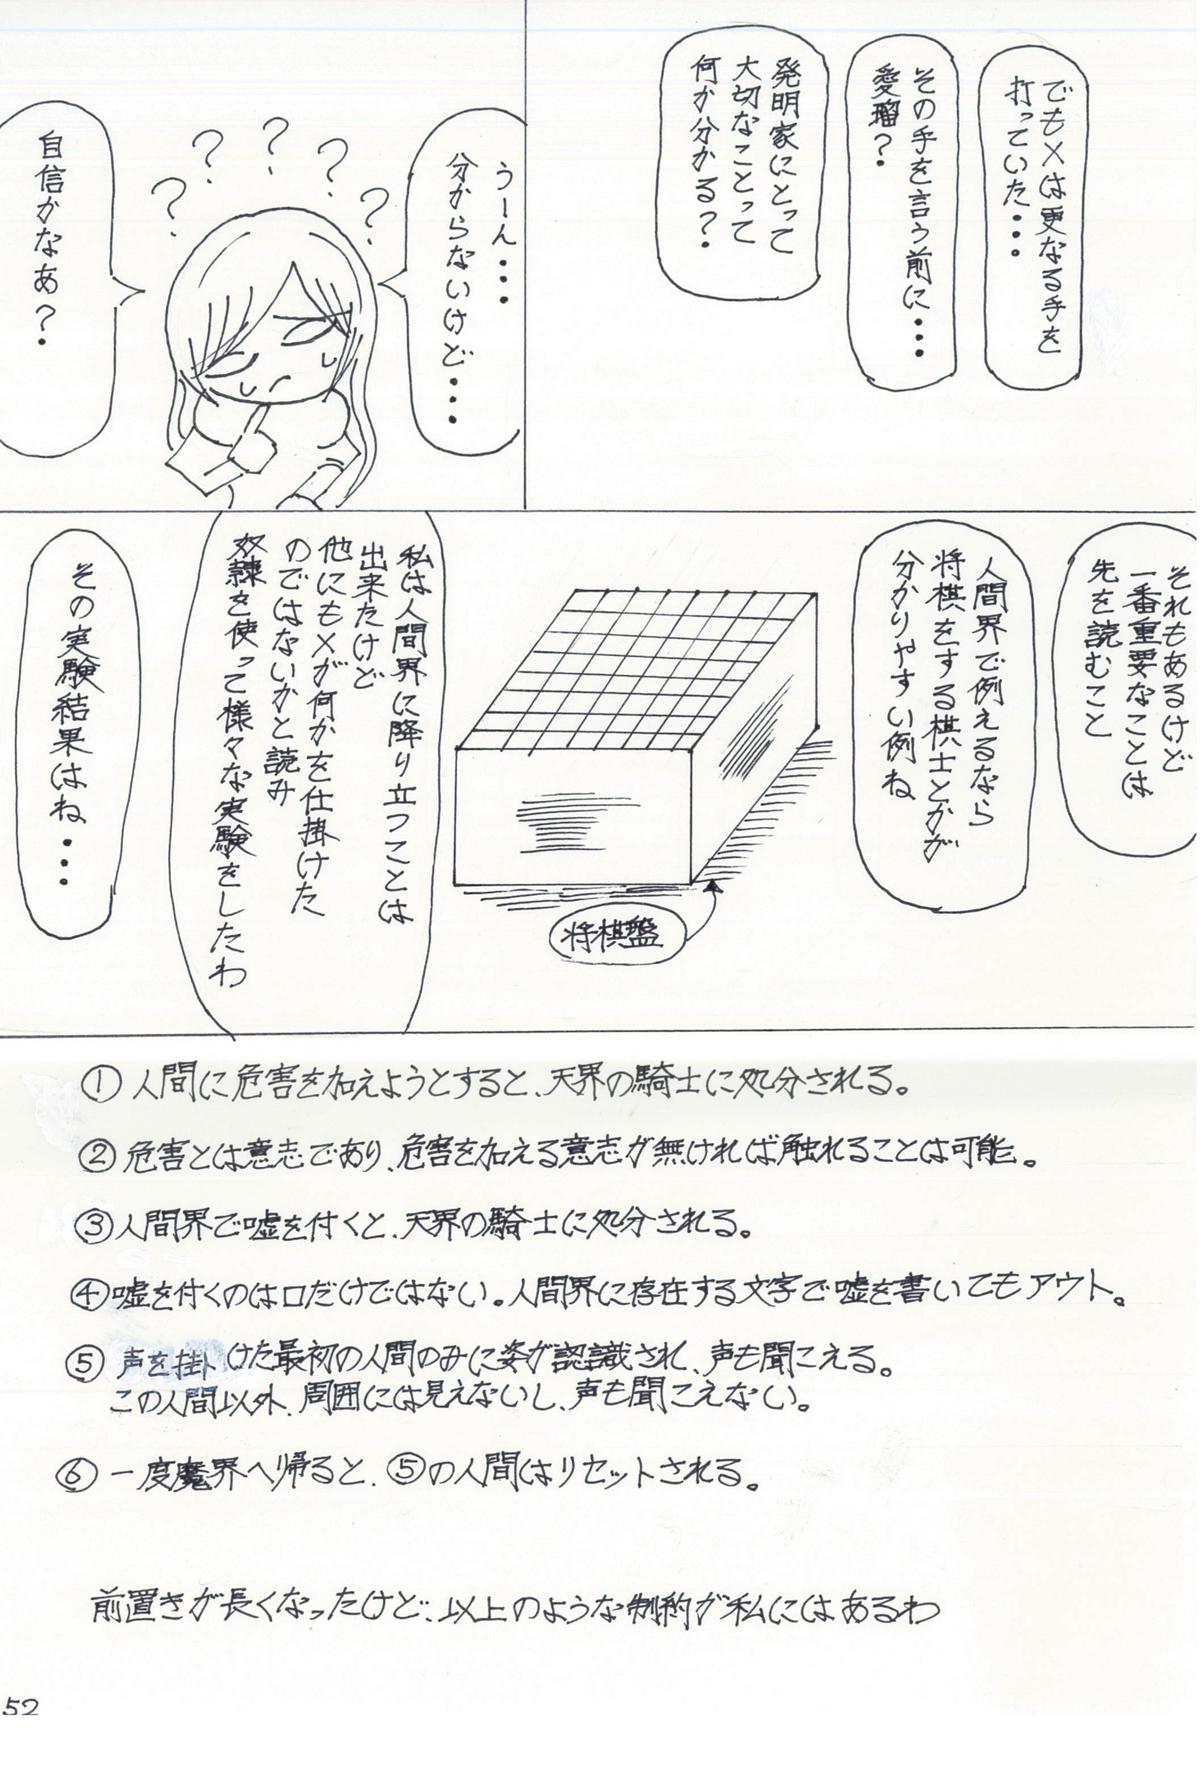 でもXは更なる手を
打っていた・・・
その手を言う前に・・・・
愛瑠？
発明家にとって
大切なことって
何か分かる？
うーん・・・
分からないけど・・・・
？
？
？
？
？
自信かなあ？
それもあるけど
一番重要なことは
先を読むこと
人間界で例えるなら
将棋をする棋士とかが
分かりやすい例ね
将棋盤
私は人間界に降り立つことは
出来たけど
他にもXが何かを仕掛けた
のではないかと読み
奴隷を使って様々な実験をしたわ
その実験結果はね・・・
①人間に危害を加えようとすると、天界の騎士に処分される。
②危害とは意志であり、危害を加える意志が無ければ触れることは可能。
③人間界で嘘を付くと、天界の騎士に処分される。
④嘘を付くのは口だけではない。人間界に存在する文字で嘘を書いてもアウト。
⑤声を掛けた最初の人間のみに姿が認識され、声も聞こえる。
この人間以外、周囲には見えないし、声も聞こえない。
⑥一度魔界へ帰ると、⑤の人間はリセットされる。
前置きが長くなったけど、以上のような制約が私にはあるわ
52